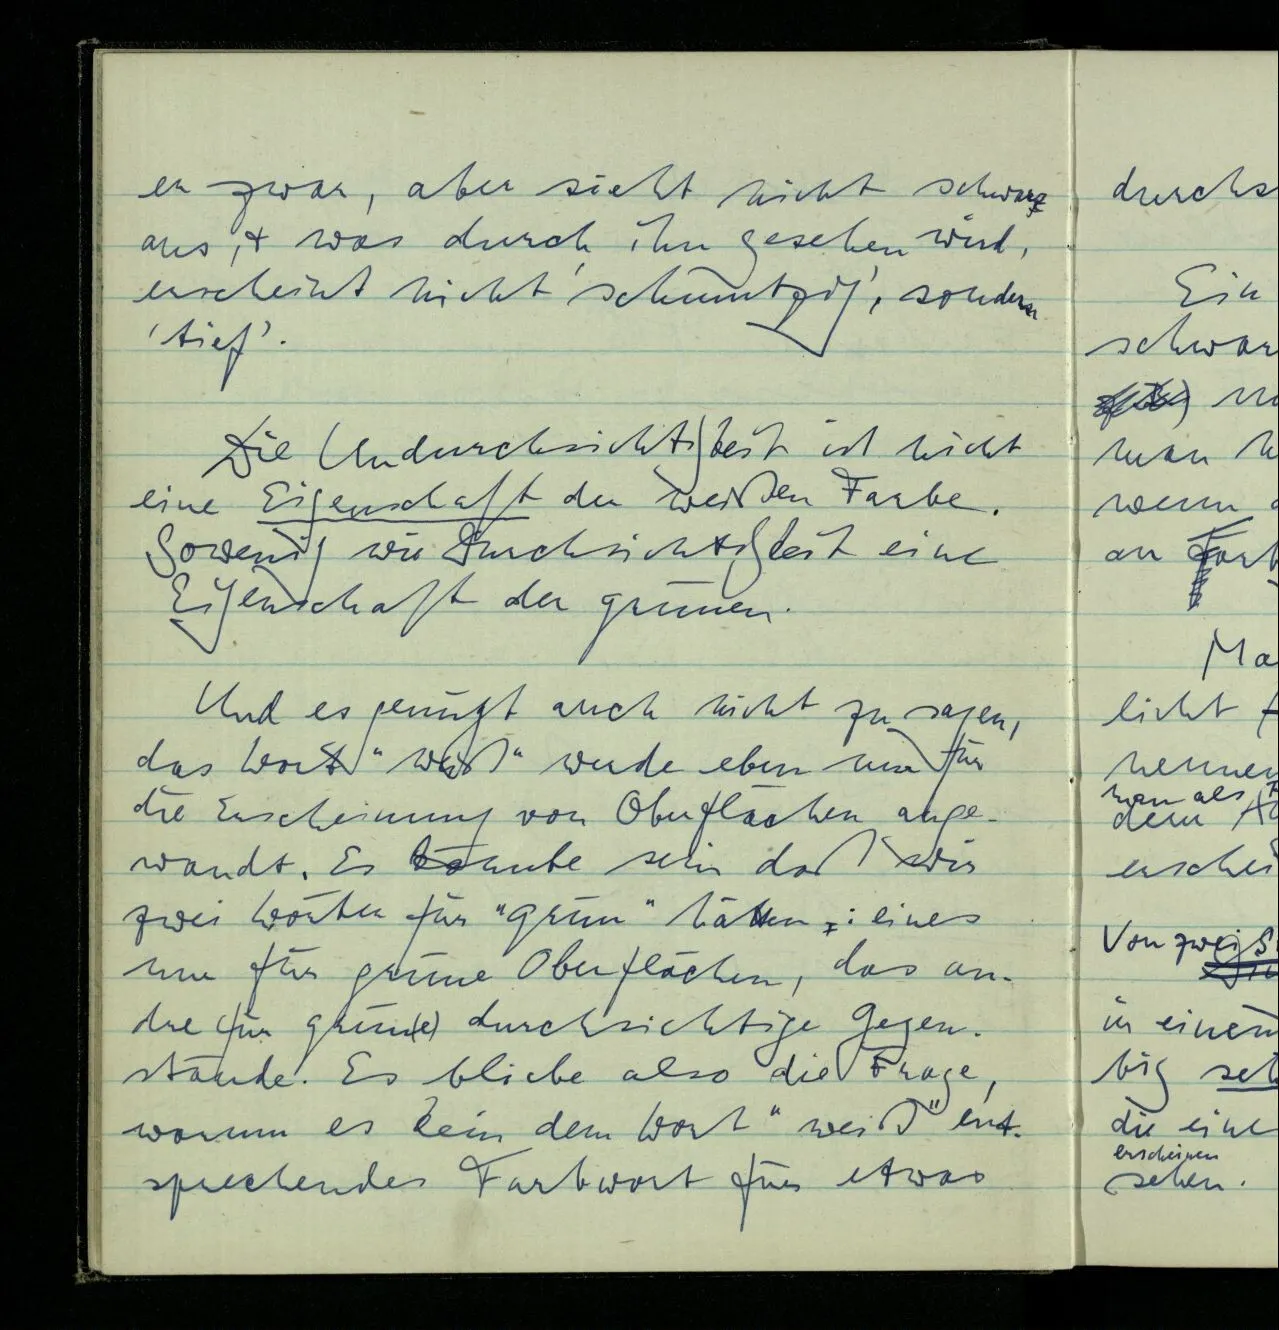 er zwar, aber sieht nicht schwarz
aus, + was durch ihn gesehen wird,
erscheint nicht 'schmutzig', sondern
'tief'.
Die Undurchsichtigkeit ist nicht
eine Eigenschaft der weißen Farbe.
Sowenig wie Durchsichtigkeit eine
Eigenschaft der grünen.
Und es genügt auch nicht zu sagen,
das Wort "weiß" werde eben nur für
die Erscheinung von Oberflächen ange-
wandt. Es könnte sein daß wir
zwei Wörter für "grün" hätten: eines
nur für grüne Oberflächen, das an-
dre für grün(e) durchsichtige Gegen-
stände. Es bliebe also die Frage,
warum es kein dem Wort "weiß" ent-
sprechendes Farbwort für etwas
durchs
Ein
schwar
man
wenn
an Farb
Ma
licht
nennen
man als
dem
erschei
Von zwei
in einem
big
die eine
erscheinen
sehen.